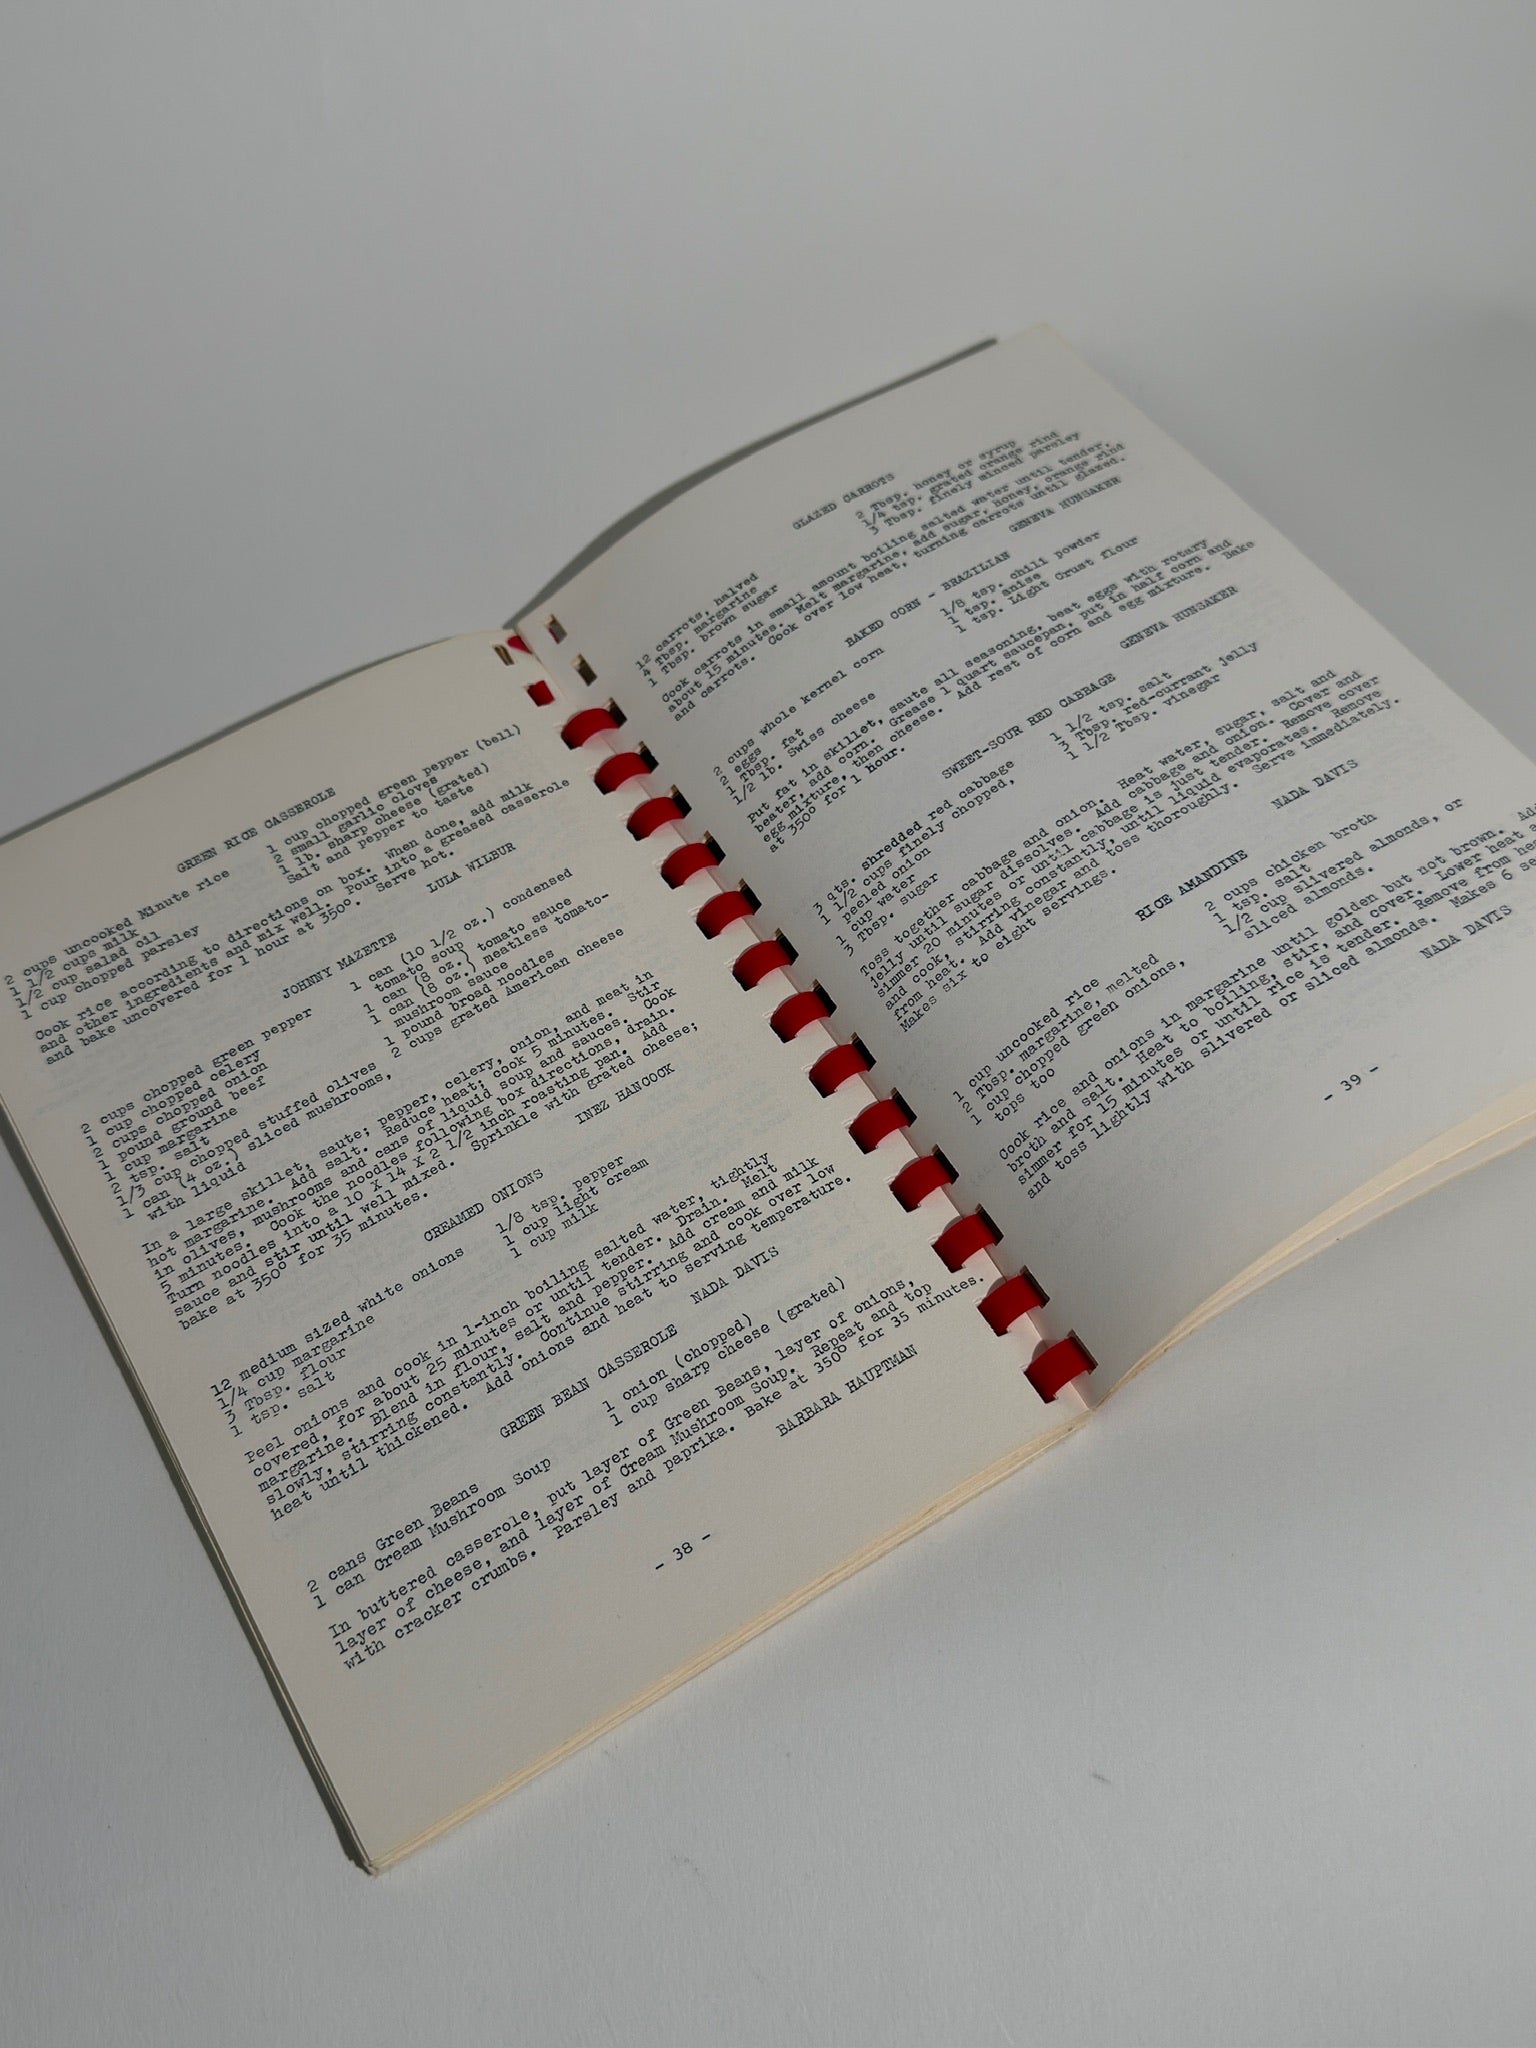 GREEN RICE CASSEROLE
2 cups uncooked Minute rice
1 1/2 cups milk
1/2 cup salad oil
1 cup chopped parsley
1 cup chopped green pepper (bell)
2 small garlic cloves
1 lb. sharp cheese (grated)
Salt and pepper to taste
Cook rice according to directions on box. When done, add milk
and other ingredients and mix well. Pour into a greased casserole
and bake uncovered for 1 hour at 350°. Serve hot.
LULA WILBUR
JOHNNY MAZETTE
2 cups chopped green pepper
1 cup chopped celery
2 cups chopped onion
1 pound ground beef
1 cup margarine
2 tsp. salt
1/3 cup chopped stuffed olives
1 can (4 oz.) sliced mushrooms,
with liquid
1 can (10 1/2 oz.) condensed
tomato soup
1 can (8 oz.) tomato sauce
1 can (8 oz.) meatless tomato-
mushroom sauce
1 pound broad noodles
2 cups grated American cheese
In a large skillet, saute; pepper, celery, onion, and meat in
hot margarine. Add salt. Reduce heat; cook 5 minutes. Stir
in olives, mushrooms and cans of liquid soup and sauces. Cook
5 minutes. Cook the noodles following box directions, drain.
Turn noodles into a 10 X 14 X 2 1/2 inch roasting pan. Add
sauce and stir until well mixed. Sprinkle with grated cheese;
bake at 350° for 35 minutes.
INEZ HANCOCK
CREAMED ONIONS
12 medium sized white onions
1/4 cup margarine
3 Tbsp. flour
1 tsp. salt
1/8 tsp. pepper
1 cup light cream
1 cup milk
Peel onions and cook in 1-inch boiling salted water, tightly
covered, for about 25 minutes or until tender. Drain. Melt
margarine. Blend in flour, salt and pepper. Add cream and milk
slowly, stirring constantly. Continue stirring and cook over low
heat until thickened. Add onions and heat to serving temperature.
NADA DAVIS
GREEN BEAN CASSEROLE
2 cans Green Beans
1 can Cream Mushroom Soup
1 onion (chopped)
1 cup sharp cheese (grated)
In buttered casserole, put layer of Green Beans, layer of onions,
layer of cheese, and layer of Cream Mushroom Soup. Repeat and top
with cracker crumbs. Parsley and paprika. Bake at 350° for 35 minutes.
BARBARA HAUPTMAN
- 38 -
GLAZED CARROTS
12 carrots, halved
4 Tbsp. margarine
1 Tbsp. brown sugar
2 Tbsp. honey or syrup
1/4 tsp. grated orange rind
3 Tbsp. finely minced parsley
Cook carrots in small amount boiling salted water until tender,
about 15 minutes. Melt margarine, add sugar, honey, orange rind
and carrots. Cook over low heat, turning carrots until glazed.
GENEVA HUNSAKER
BAKED CORN - BRAZILIAN
2 cups whole kernel corn
2 eggs
1 Tbsp. fat
1/2 lb. Swiss cheese
1/8 tsp. chili powder
1 tsp. anise
1 tsp. Light Crust flour
Put fat in skillet, saute all seasoning, beat eggs with rotary
beater, add corn. Grease 1 quart saucepan, put in half corn and
egg mixture, then cheese. Add rest of corn and egg mixture. Bake
at 350° for 1 hour.
GENEVA HUNSAKER
SWEET-SOUR RED CABBAGE
3 qts. shredded red cabbage
1 1/2 cups finely chopped,
peeled onion
1 cup water
3 Tbsp. sugar
1 1/2 tsp. salt
3 Tbsp. red-currant jelly
1 1/2 Tbsp. vinegar
Toss together cabbage and onion. Heat water, sugar, salt and
jelly until sugar dissolves. Add cabbage and onion. Cover and
simmer 20 minutes or until cabbage is just tender. Remove cover
and cook, stirring constantly, until liquid evaporates. Remove
from heat. Add vinegar and toss thoroughly. Serve immediately.
Makes six to eight servings.
NADA DAVIS
RICE AMANDINE
1 cup uncooked rice
2 Tbsp. margarine, melted
1 cup chopped green onions,
tops too
2 cups chicken broth
1 tsp. salt
1/2 cup slivered almonds, or
sliced almonds.
Cook rice and onions in margarine until golden but not brown.
broth and salt. Heat to boiling, stir, and cover. Lower heat
simmer for 15 minutes or until rice is tender. Remove from
and toss lightly with slivered or sliced almonds. Makes 6
NADA DAVIS
- 39 -